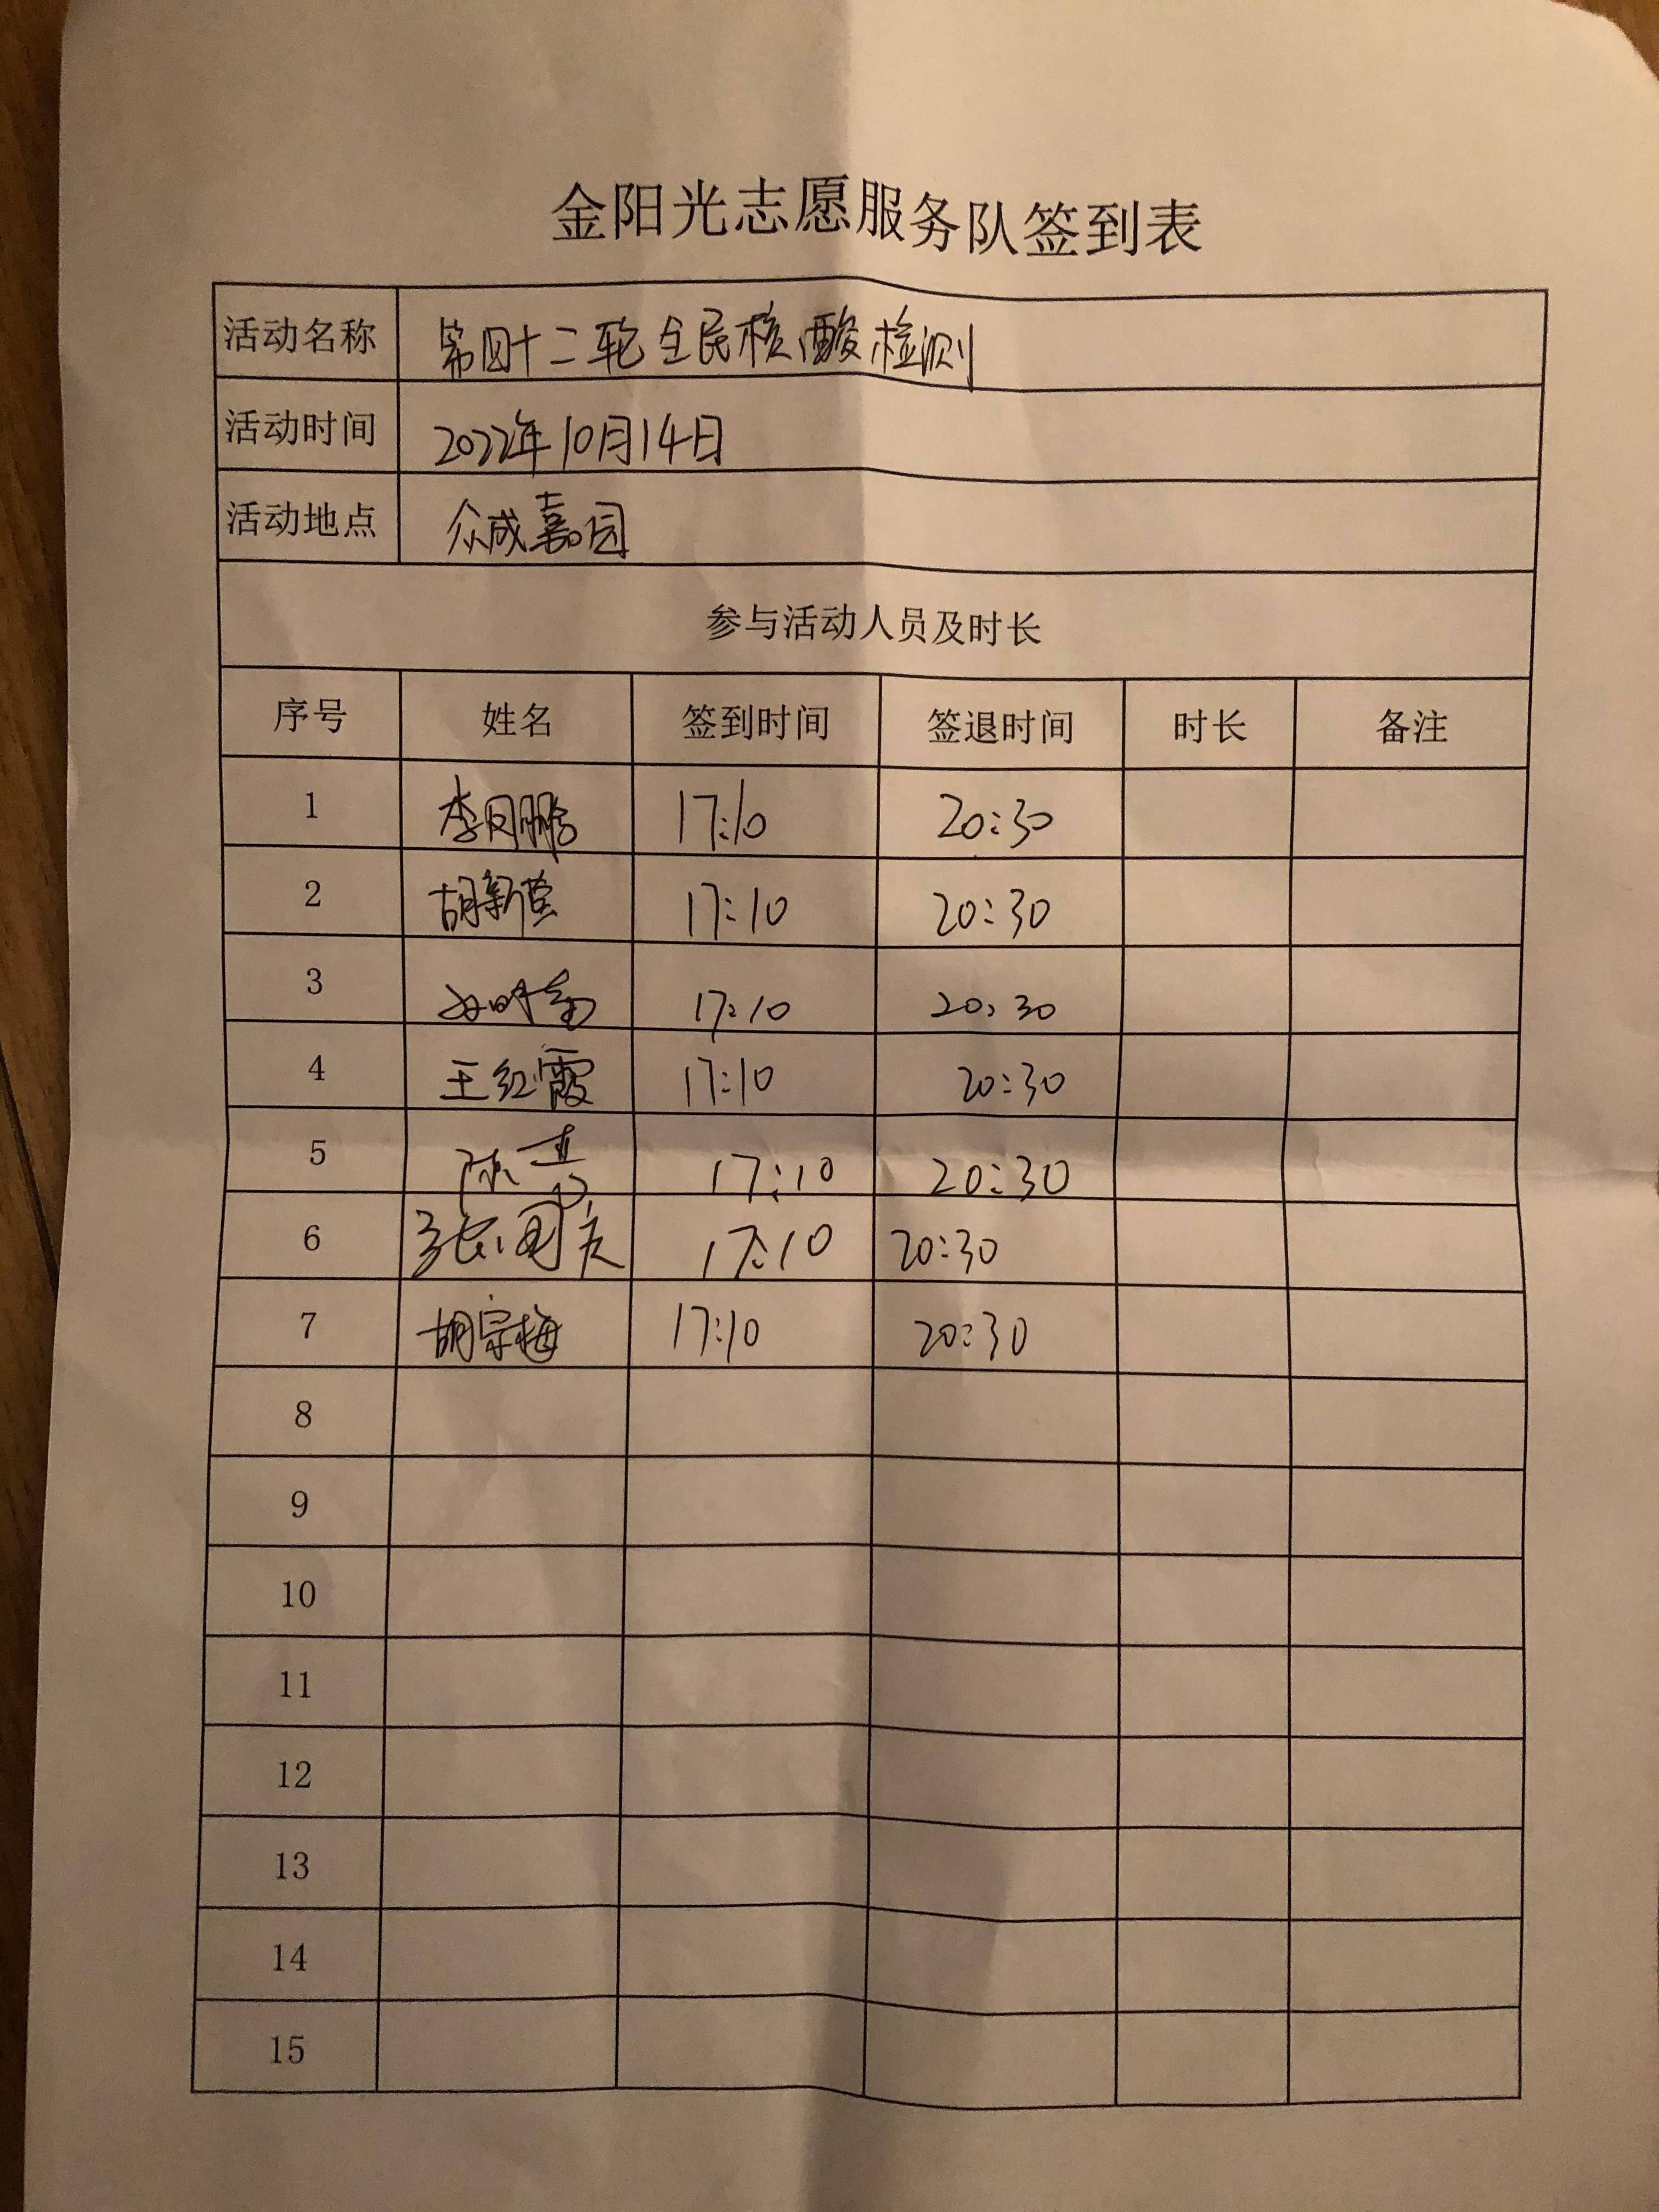 金阳光志愿服务队签到表
活动名称 第四十二轮全民核酸检测
活动时间 2022年10月14日
活动地点 众成嘉园
参与活动人员及时长
序号 姓名 签到时间 签退时间 时长 备注
1 李月鹏 17:10 20:30
2 胡新 17:10 20:30
3 17:10 20:30
4 王红霞 17:10 20:30
5 陈 17:10 20:30
6 张国庆 17:10 20:30
7 胡宗梅 17:10 20:30
8
9
10
11
12
13
14
15